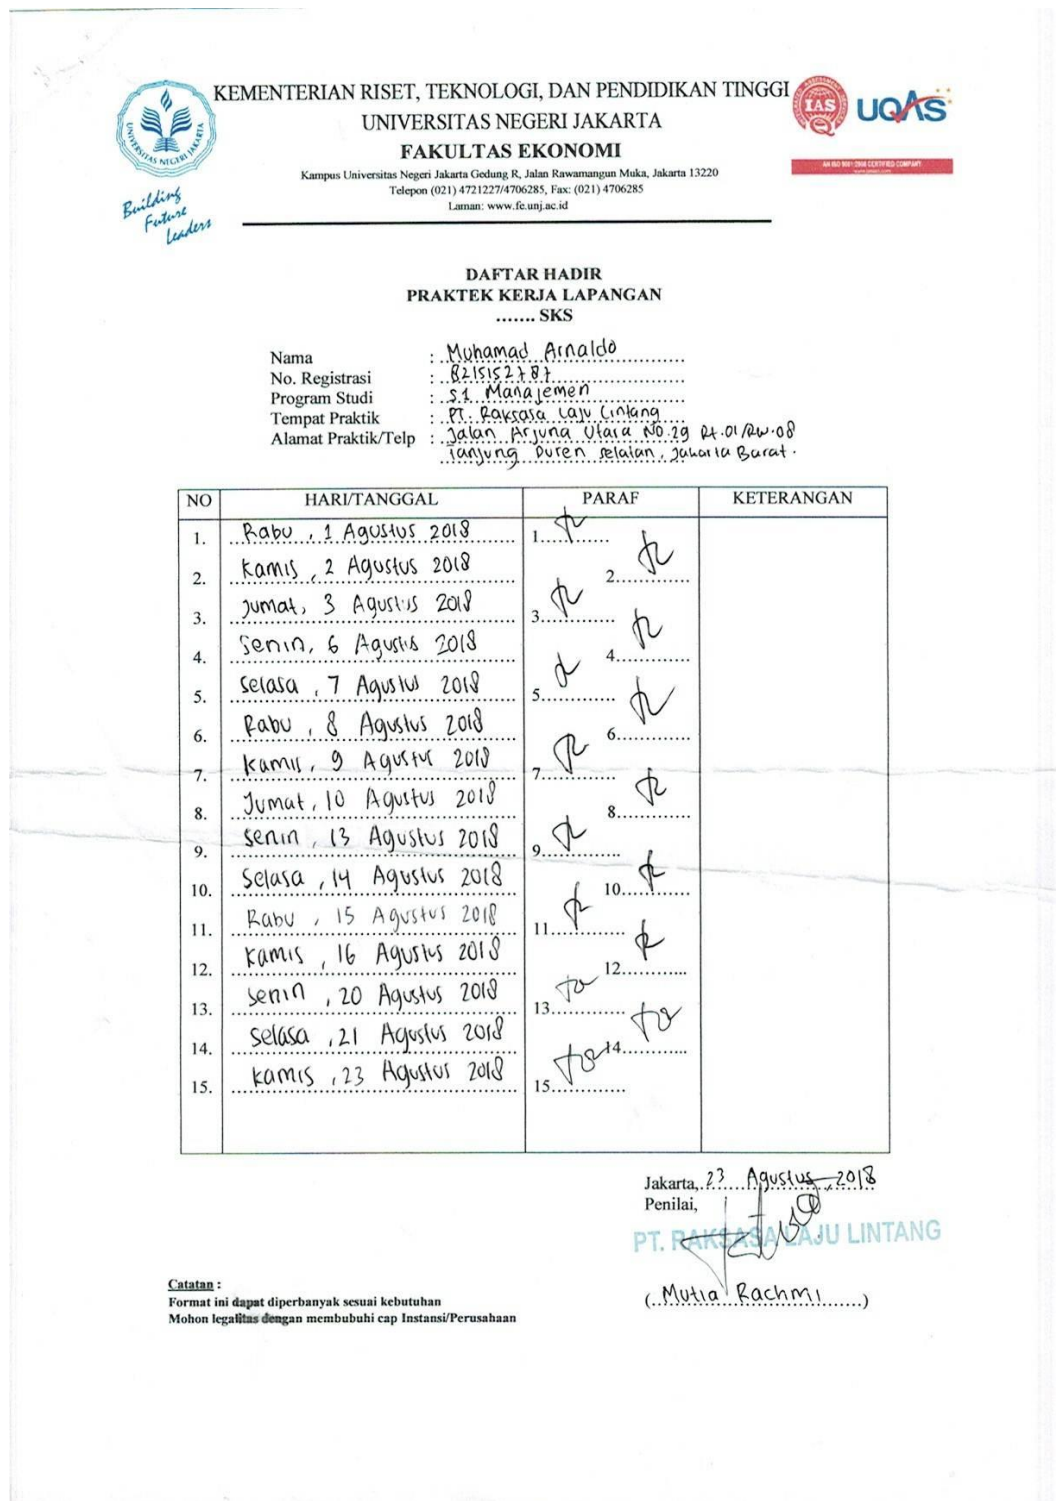 KEMENTERIAN RISET, TEKNOLOGI, DAN PENDIDIKAN TINGGI
UNIVERSITAS NEGERI JAKARTA
FAKULTAS EKONOMI
Kampus Universitas Negeri Jakarta Gedung R, Jalan Rawamangun Muka, Jakarta 13220
Telepon (021) 4721227/4706285, Fax: (021) 4706285
Laman: www.fe.unj.ac.id
UNIVERSITAS NEGERI JAKARTA
Building
Future
Leaders
IAS
UQAS
AN ISO 9001:2008 CERTIFIED COMPANY
DAFTAR HADIR
PRAKTEK KERJA LAPANGAN
....... SKS
Nama : Muhamad Arnaldo
No. Registrasi : 8215152787
Program Studi : S1 Manajemen
Tempat Praktik : PT. Raksasa Laju Lintang
Alamat Praktik/Telp : Jalan Arjuna Utara NO.29 Rt.01/RW.08
Tanjung Duren Selatan, Jakarta Barat.
NO HARI/TANGGAL PARAF KETERANGAN
1. Rabu, 1 Agustus 2018 1.
2. Kamis, 2 Agustus 2018 2.
3. Jumat, 3 Agustus 2018 3.
4. Senin, 6 Agustus 2018 4.
5. Selasa, 7 Agustus 2018 5.
6. Rabu, 8 Agustus 2018 6.
7. Kamis, 9 Agustus 2018 7.
8. Jumat, 10 Agustus 2018 8.
9. Senin, 13 Agustus 2018 9.
10. Selasa, 14 Agustus 2018 10.
11. Rabu, 15 Agustus 2018 11.
12. Kamis, 16 Agustus 2018 12.
13. Senin, 20 Agustus 2018 13.
14. Selasa, 21 Agustus 2018 14.
15. Kamis, 23 Agustus 2018 15.
Jakarta, 23 Agustus, 2018
Penilai,
PT. RAKSASA LAJU LINTANG
(Mutia Rachmi)
Catatan :
Format ini dapat diperbanyak sesuai kebutuhan
Mohon legalitas dengan membubuhi cap Instansi/Perusahaan